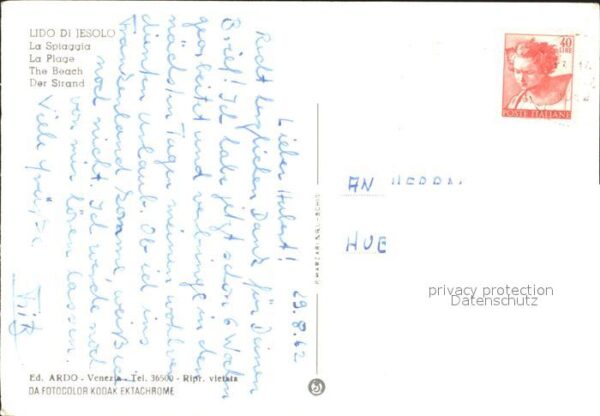 LIDO DI JESOLO
La Spiaggia
La Plage
The Beach
Der Strand
29.8.62
Lieber Hubert!
Recht herzlichen Dank für Deinen
Brief! Ich habe jetzt schon 6 Wochen
gearbeitet und verbringe in den
nächsten Tagen meinen wohlver
dienten Urlaub. Ob ich ins
Frankenland komme, weiß ich
noch nicht. Ich werde noch
von mir hören lassen.
Viele Grüße
Fritz
40
LIRE
POSTE ITALIANE
AN HERRN
HUE
privacy protection
Datenschutz
Ed. ARDO - Venezia - Tel. 36500 - Ripr. vietata
DA FOTOCOLOR KODAK EKTACHROME